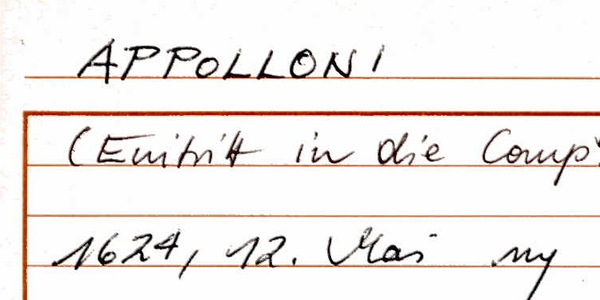 APPOLLONI
(Eintritt in die Comp
1624, 12. Mai ny